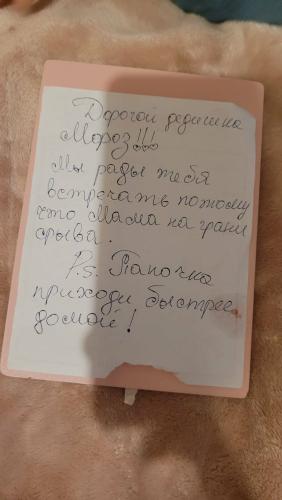 Дорогой дедушка
Мороз!!!
Мы рады тебя
встречать потому
что Мама на грани
срыва.
P.s. Папочка
приходи быстрее
домой!